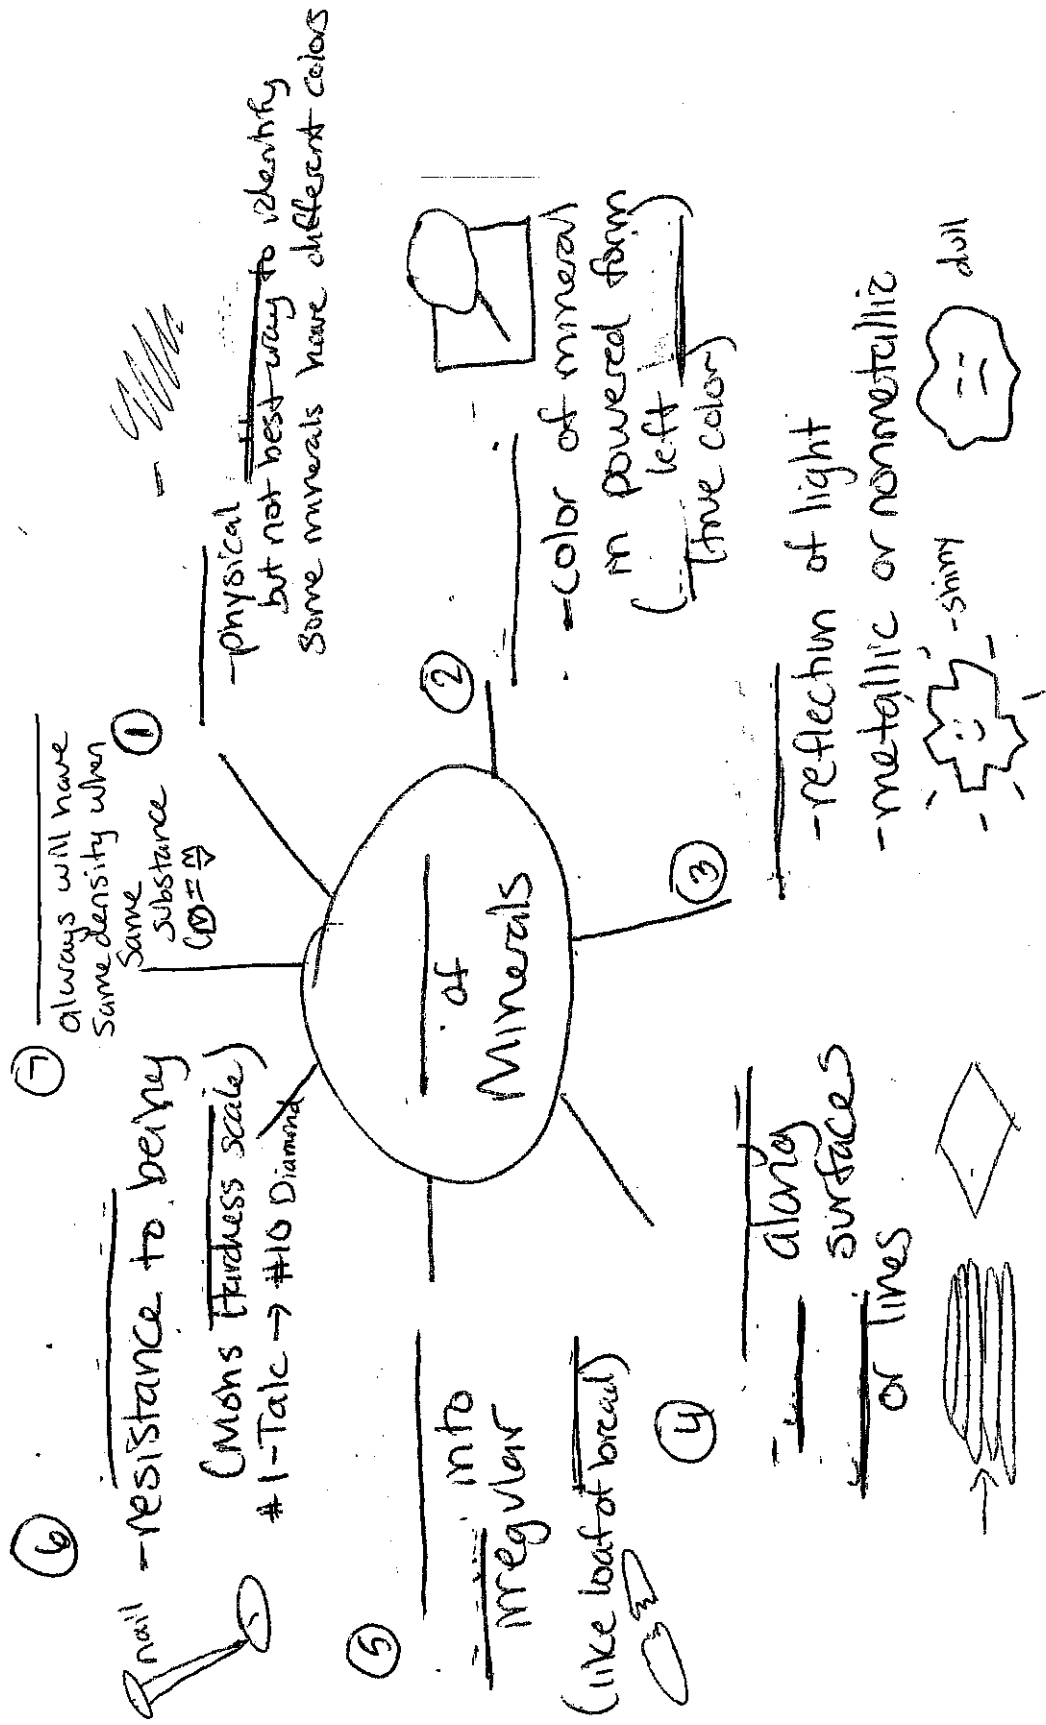 ①
-physical
but not best way to identify
Some minerals have different colors
②
-color of mineral
in powered form
left
(true color)
③
-reflection of light
-metallic or nonmetallic
-shiny
dull
④
along
surfaces
or lines
⑤
into
irregular
(like loaf of bread)
⑥
nail
-resistance to being
(Mohs Hardness scale)
#1-Talc → #10 Diamond
⑦
always will have
same density when
same
substance
of
Minerals